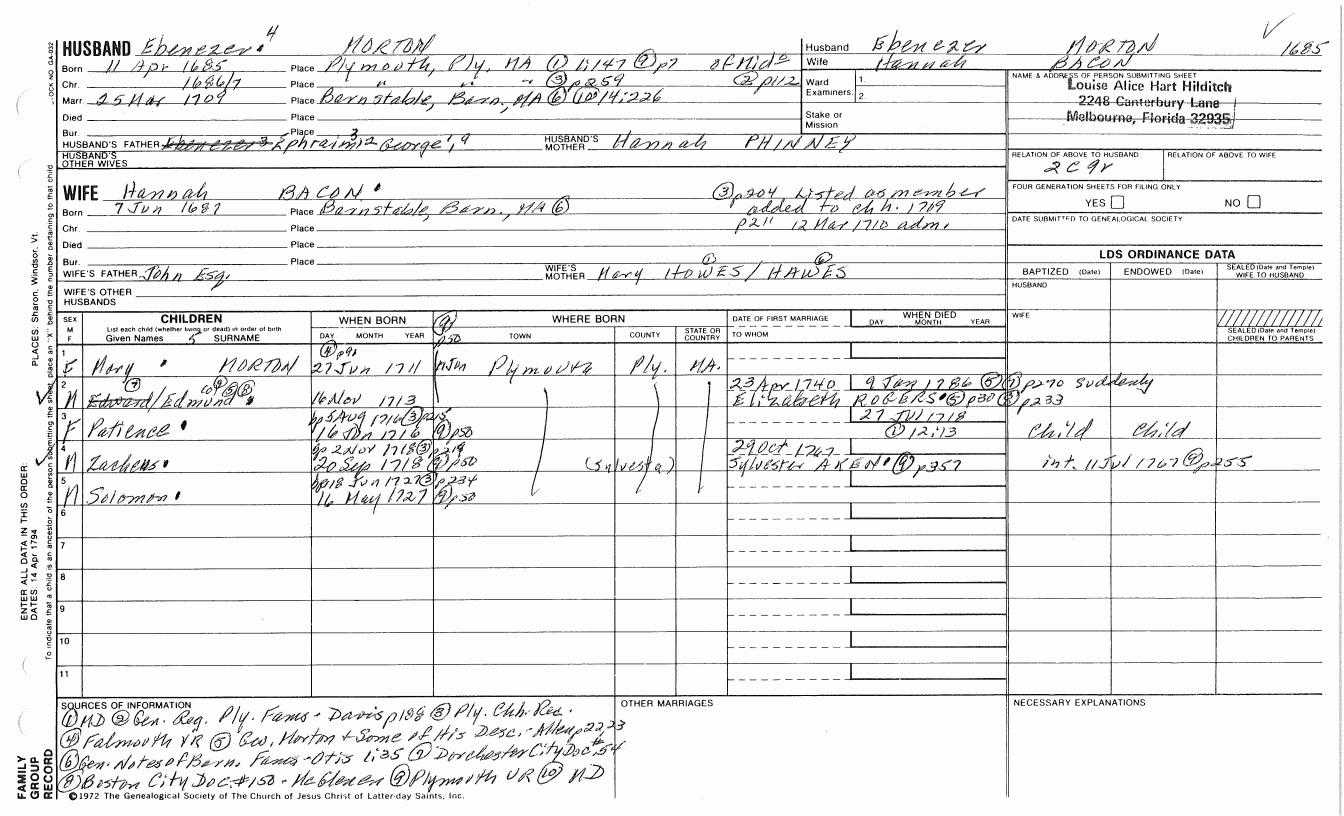 4
HUSBAND Ebenezer MORTON
Born 11 Apr 1685 Place Plymouth, Ply, MA ① 1:147 ⑨ p7 of Mid
Chr. 1686/7 Place " " " ③ p259 ② p112
Marr. 25 Mar 1709 Place Barnstable, Barn., MA ⑥ ⑩ 14:226
Died Place
Bur. Place
HUSBAND'S FATHER Ebenezer 3 Ephraim 3,2 George 1, 9 HUSBAND'S MOTHER Hannah PHINNEY
HUSBAND'S OTHER WIVES
WIFE Hannah BACON ③ p204 Listed as member
Born 7 Jun 1687 Place Barnstable, Barn., MA ⑥ added to chh. 1709
Chr. Place p211 12 Mar 1710 adm.
Died Place
Bur. Place
WIFE'S FATHER John Esq. WIFE'S MOTHER Mary HOWES ① / HAWES ⑥
WIFE'S OTHER HUSBANDS
Husband Ebenezer MORTON 1685
Wife Hannah BACON
Ward 1.
Examiners: 2
Stake or Mission
NAME & ADDRESS OF PERSON SUBMITTING SHEET
Louise Alice Hart Hilditch
2248 Canterbury Lane
Melbourne, Florida 32935
RELATION OF ABOVE TO HUSBAND RELATION OF ABOVE TO WIFE
2C9r
FOUR GENERATION SHEETS FOR FILING ONLY
YES NO
DATE SUBMITTED TO GENEALOGICAL SOCIETY
LDS ORDINANCE DATA
BAPTIZED (Date) ENDOWED (Date) SEALED (Date and Temple) WIFE TO HUSBAND
HUSBAND
WIFE
SEALED (Date and Temple) CHILDREN TO PARENTS
SEX M F CHILDREN WHEN BORN ⑨ p50 WHERE BORN DATE OF FIRST MARRIAGE WHEN DIED
List each child (whether living or dead) in order of birth
Given Names 5 SURNAME DAY MONTH YEAR TOWN COUNTY STATE OR COUNTRY TO WHOM DAY MONTH YEAR
④ p91
1 F Mary MORTON 27 Jun 1711 Jun Plymouth Ply. MA.
2 ⑦ ⑨⑤⑧ 23 Apr 1740 9 Jan 1786 ⑤ ⑦ p270 suddenly
M Edward/Edmund 16 Nov 1713 Elizabeth ROGERS ⑤ p30 ⑧ p233
3 bp 5 Aug 1716 ③ p215 27 Jul 1718
F Patience 16 Jun 1716 ⑨ p50 ① 12:13 Child Child
4 bp 2 Nov 1718 ③ p219 29 Oct 1767
M Zacheus 20 Sep 1718 ⑨ p50 (Sylvesta) Sylvester AKEN ⑨ p357 int. 11 Jul 1767 ⑨ p255
5 bp 18 Jun 1727 ③ p234
M Solomon 16 May 1727 ⑨ p50
6
7
8
9
10
11
SOURCES OF INFORMATION
① MD ② Gen. Reg. Ply. Fams - Davis p188 ③ Ply. Chh. Rec.
④ Falmouth VR ⑤ Geo. Morton + Some of His Desc. - Allen p22,23
⑥ Gen. Notes of Barn. Fams - Otis 1:35 ⑦ Dorchester City Doc. #54
⑧ Boston City Doc. #150 - McGlenen ⑨ Plymouth VR ⑩ MD
OTHER MARRIAGES
NECESSARY EXPLANATIONS
©1972 The Genealogical Society of The Church of Jesus Christ of Latter-day Saints, Inc.
PLACES: Sharon, Windsor, Vt.
ENTER ALL DATA IN THIS ORDER:
DATES: 14 Apr 1794
To indicate that a child is an ancestor of the person submitting the sheet, place an "X" behind the number pertaining to that child
FAMILY
GROUP
RECORD